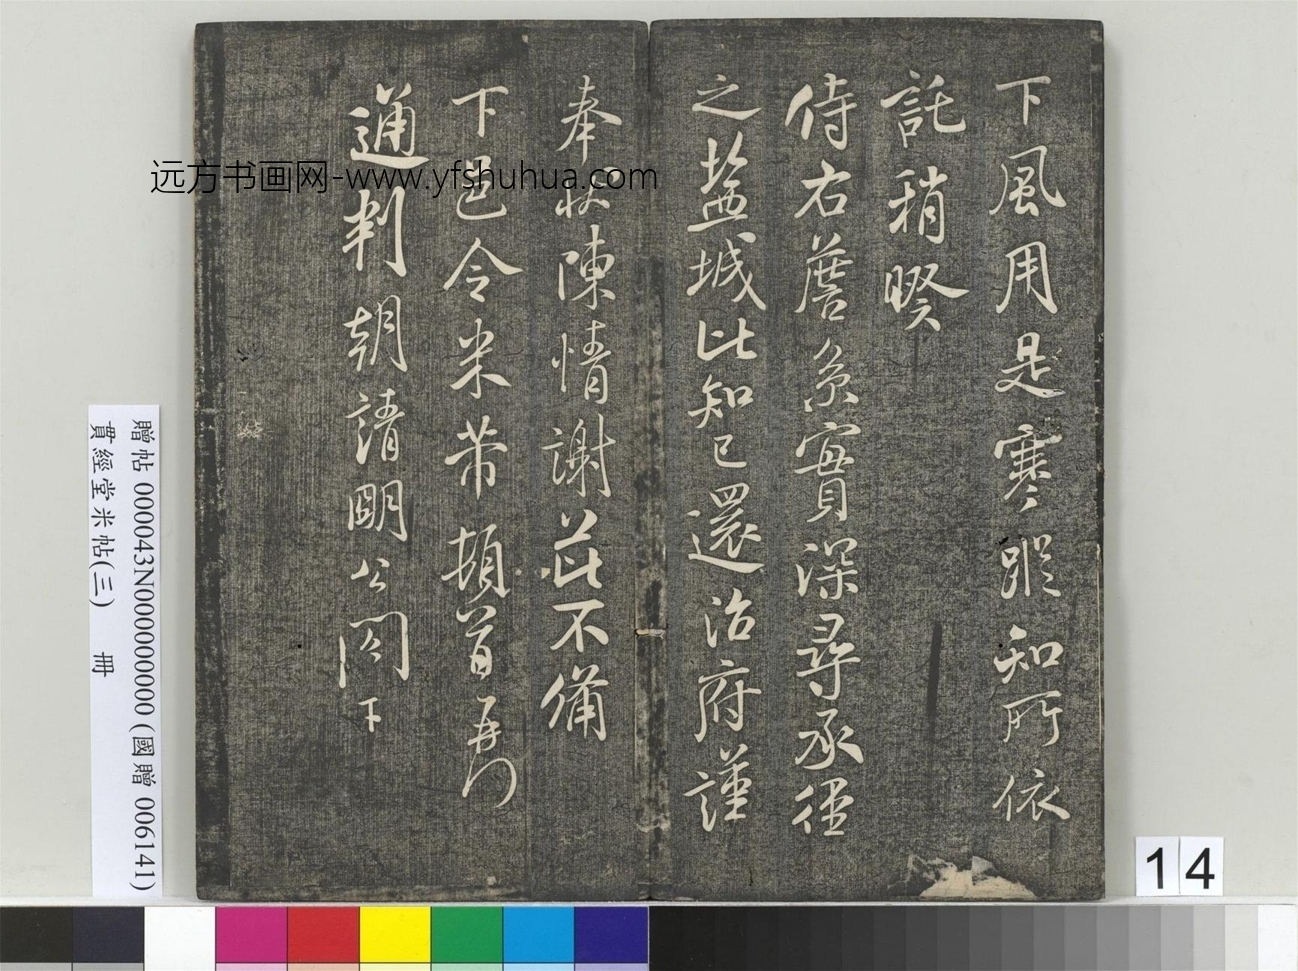 下風用是寒蹤知所依
託稍暌
侍右詹系實深尋承徑
之鹽城比知已還治府謹
奉狀陳情謝茲不備
下邑令米芾頓首再拜
通判朝請明公閤下
远方书画网-www.yfshuhua.com
贈帖 000043N000000000 (國贈 006141)
貫經堂米帖(三) 冊
14